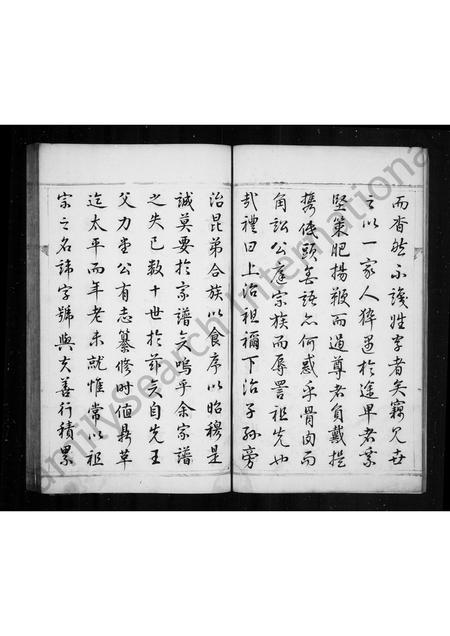 而杳然不識姓字者矣竊見世
之以一家人猝遇於途卑者乘
堅策肥揚鞭而過尊者負戴提
攜俛首無語亦何惑乎骨肉而
角訟公庭宗族而辱詈祖先也
哉禮曰上治祖禰下治子孫旁
治昆弟合族以食序以昭穆是
誠莫要於家譜矣嗚乎余家譜
之失已数十世於茲矣自先王
父力堂公有志纂修时值鼎革
迄太平而年老未就惟常以祖
宗之名諱字號與夫善行積累
FamilySearch International